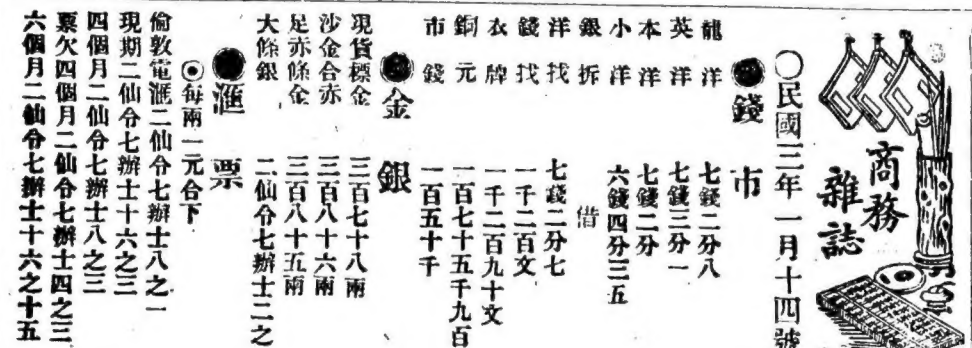 商務
雜誌
○民國三年一月十四號
●錢市
龍洋 七錢二分八
英洋 七錢三分一
本洋 七錢二分
小洋 六錢四分三五
銀拆 借
洋找 七錢二分七
錢找 一千二百文
衣牌 一千二百九十文
銅元 一百七十五千九百
市錢 一百五十千
●金銀
現貨標金 三百七十八兩
沙金合赤 三百八十六兩
足赤條金 三百八十五兩
大條銀 二仙令七辦士二之
●滙票
◉每兩一元合下
倫敦電滙二仙令七辦士八之一
現期二仙令七辦士十六之三
四個月二仙令七辦士八之三
票欠四個月二仙令七辦士四之三
六個月二仙令七辦士十六之十五